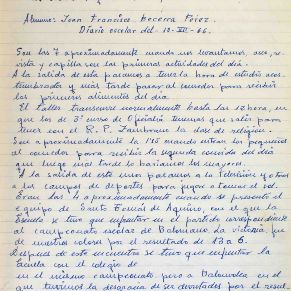 Alumno: Juan Francisco Becerra Pérez.
Diario escolar del. 12-XII-66.
Son las 7 aproximadamente cuando nos levantamos, aseo, re-
vista y capilla son las primeras actividades del día.
A la salida de esta pasamos a tener la hora de estudio acos-
tumbrada y más tarde pasar al comedor para recibir
los primeros alimentos del día.
El taller transcurre normalmente hasta las 12 hora, en
que los de 3º curso de Oficialía tenemos que salir para
tener con el R. P. Zambrano la clase de religión.
Son aproximadamente la 1'15 cuando entran los pequeños
al comedor para recibir la segunda comida del día
que luego más tarde lo haríamos los mayores.
A la salida de esta unos pasamos a la Televisión y otros
a los campos de deportes para jugar o tomar el sol.
Eran las 4 aproximadamente cuando se presentó el
equipo de Santo Tomás de Aquino, con el que la
Escuela se tuvo que enfrentar en el partido correspondiente
al campeonato escolar de Balonmano, la victoria, fue
de nuestros colores por el resultado de 13 a 6.
Después de este encuentro se tuvo que enfrentar la
escuela con el colegio de
en el mismo campeonato pero a Balonvolea en el
que tuvimos la desgracia de ser derrotados por el resul